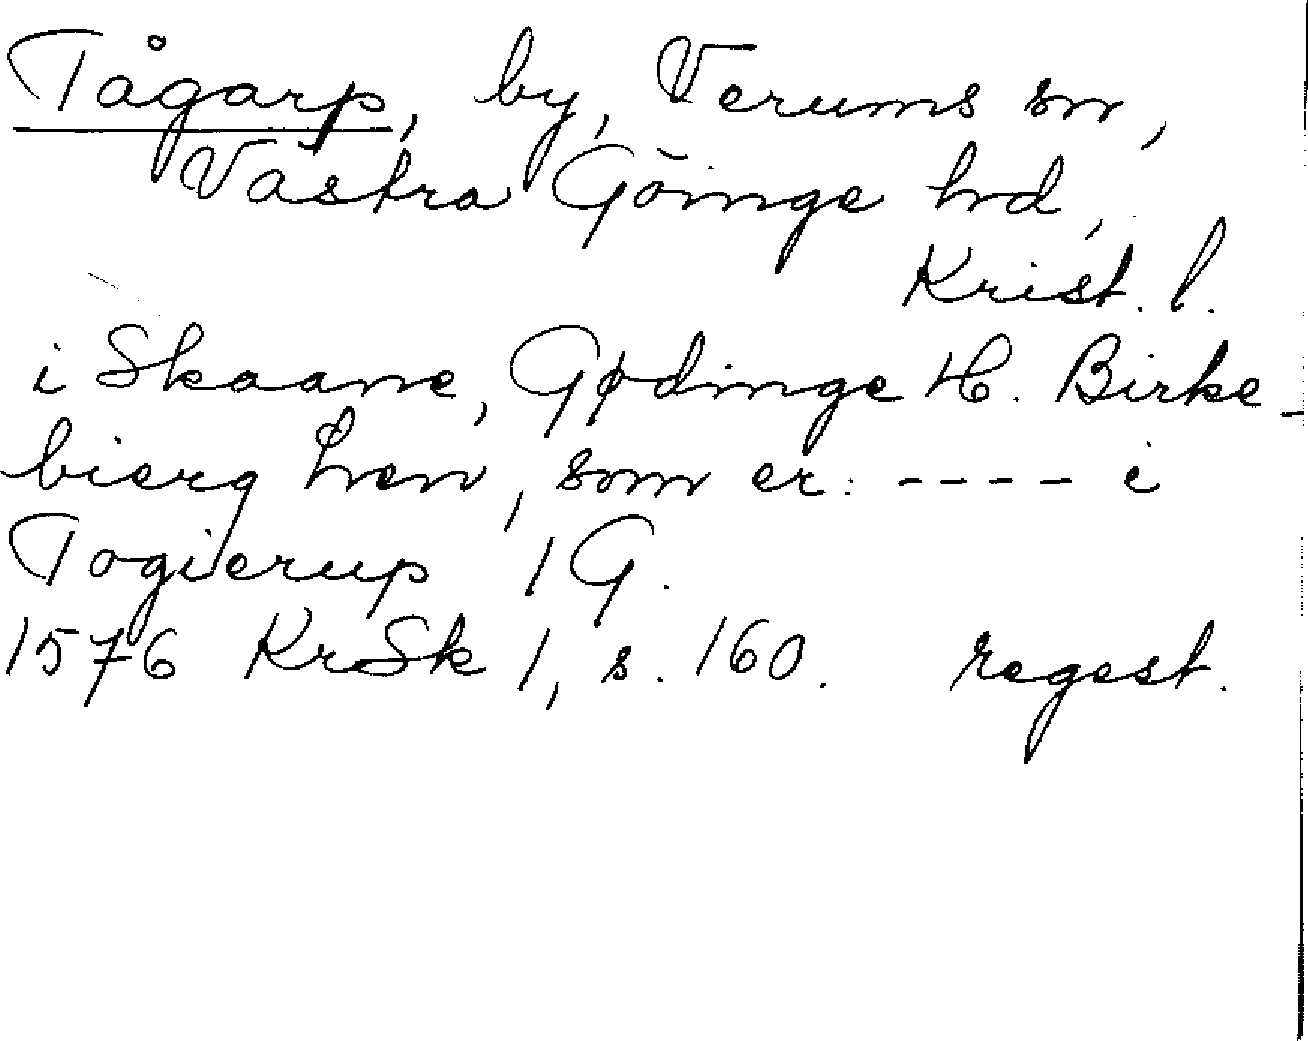 Tågarp, by, Verums sn,
Västra Göinge hd,
Krist. l.
i Skaane, Gødinge H. Birke-
bierg Len, som er: ---- i
Togierup 1 G.
1576 KrSk 1, s. 160. regest.